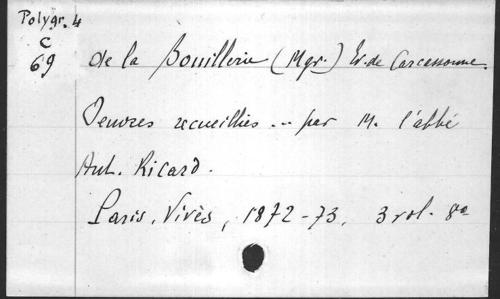 Polygr. 4
C
69
de la Bouillerie (Mgr.) Ev. de Carcassonne.
Oeuvres recueillies ... par M. l'abbé
Ant. Ricard.
Paris, Vivès, 1872-73, 3 vol. 8°